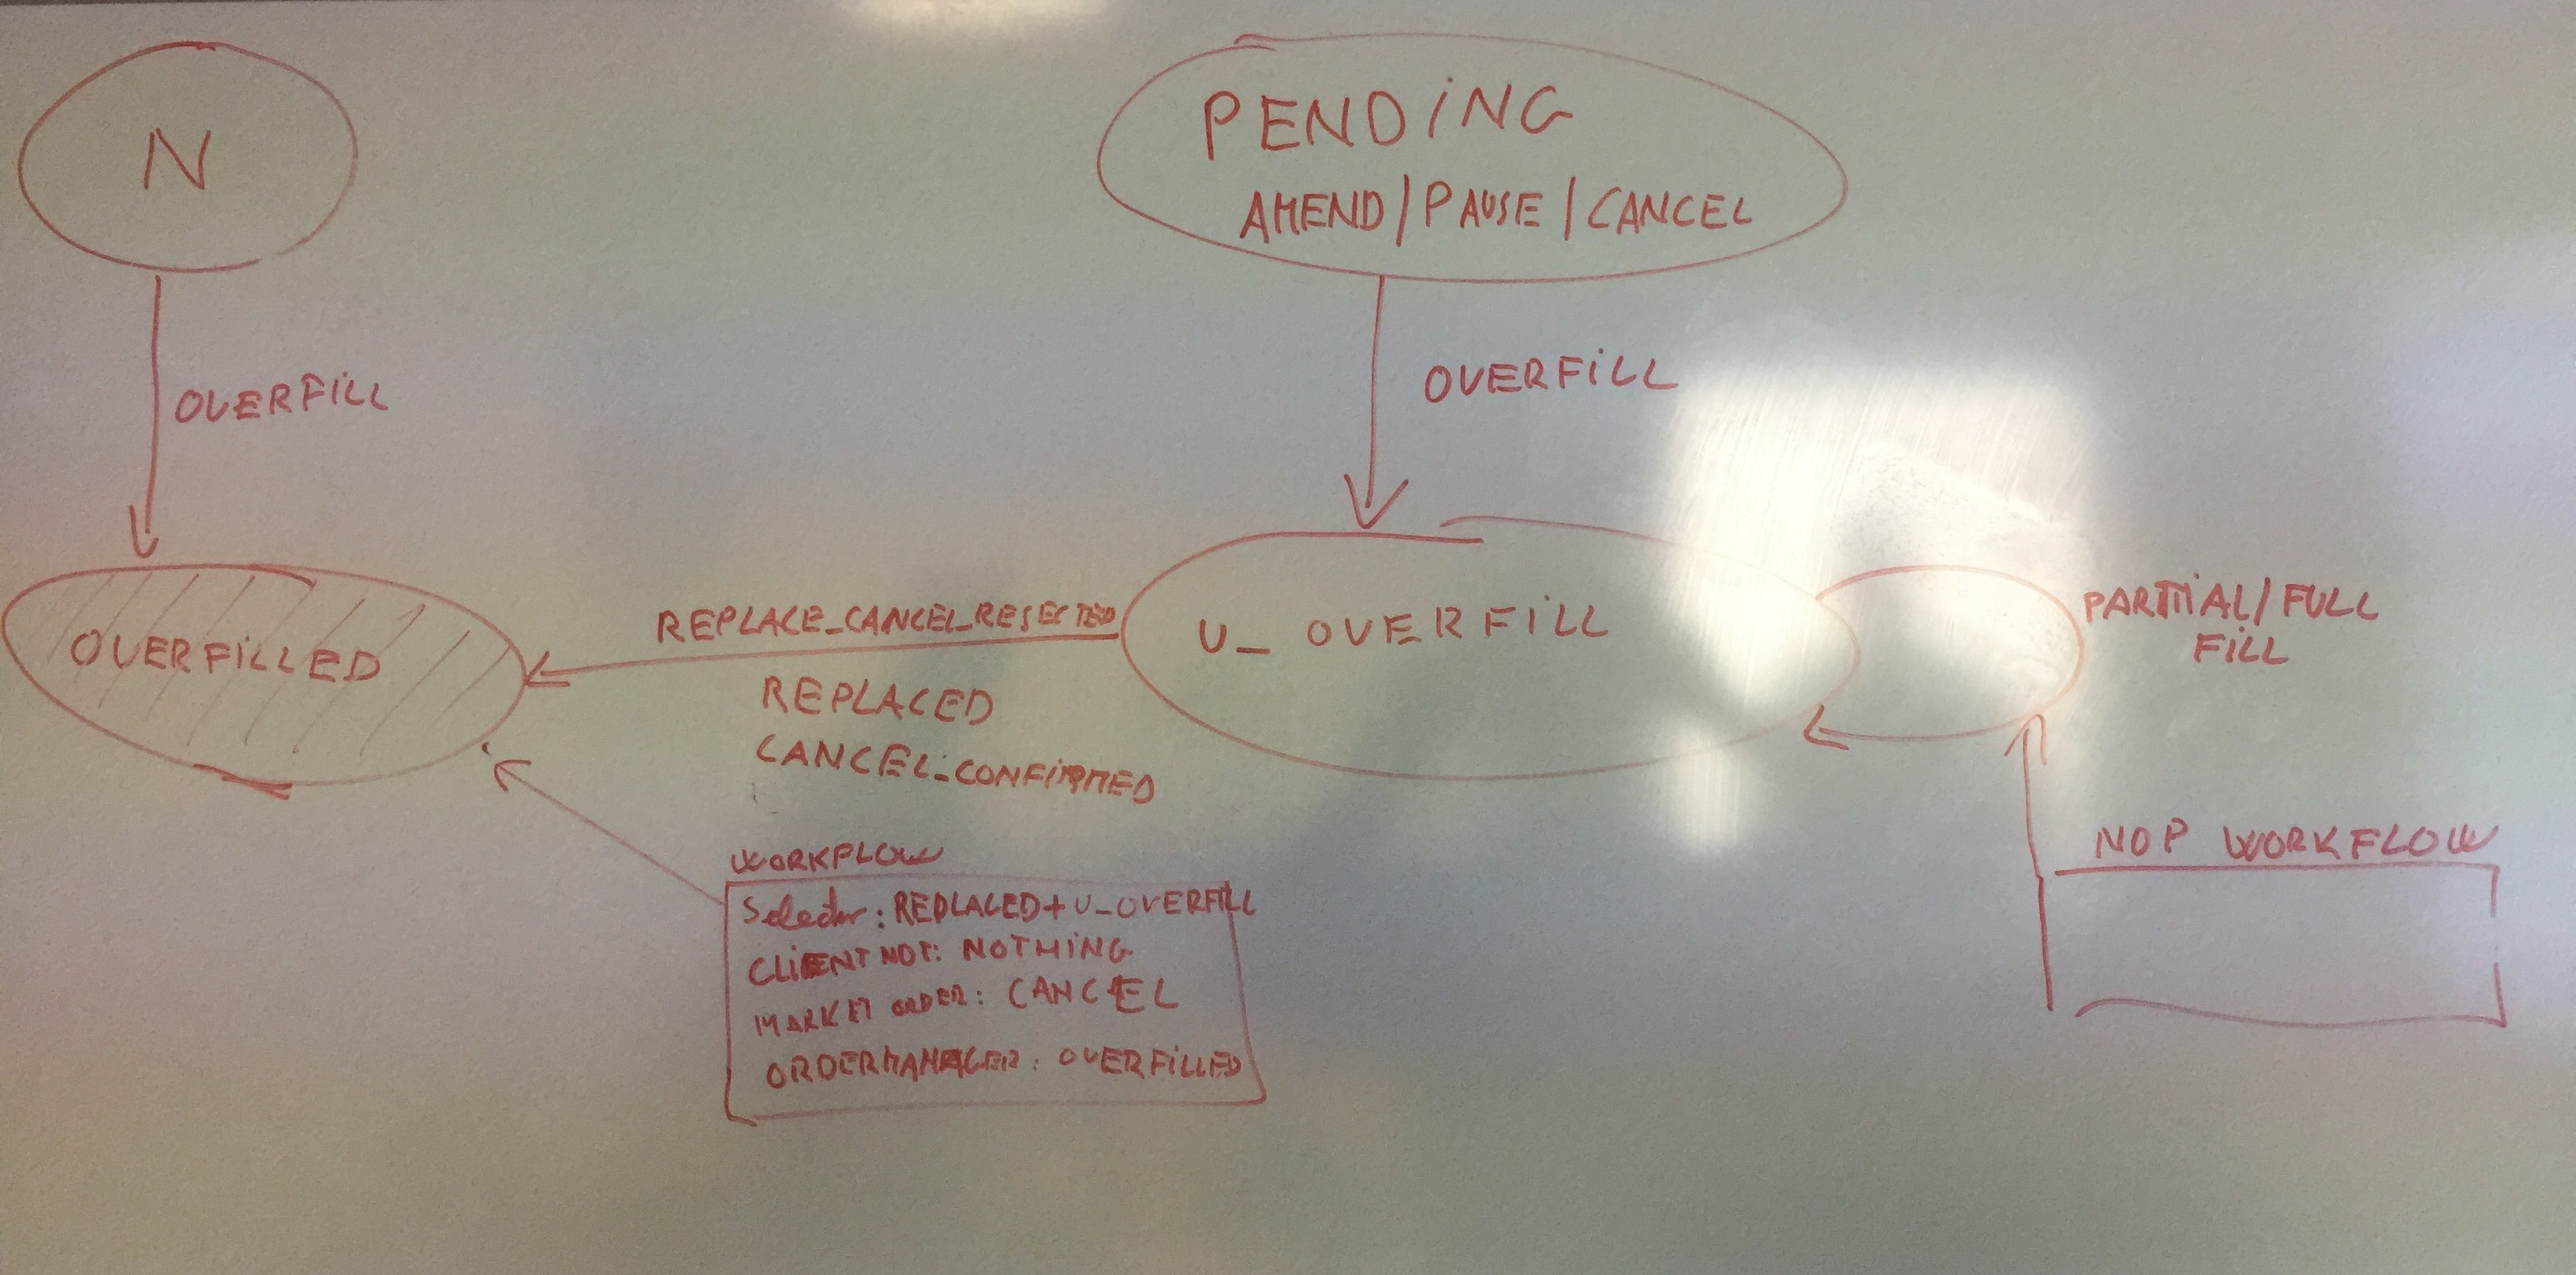 N
PENDiNG
AMEND/PAUSE/CANCEL
OVERFiLL
OVERFiLL
OVERFiLLED
REPLACE_CANCEL_REJECTED
REPLACED
CANCEL_CONFiRMED
U_ OVERFiLL
PARTiAL/FULL
FiLL
WORKFLOW
Selector: REPLACED+U_OVERFiLL
CLiENT NOT: NOTHiNG
MARKET ORDER: CANCEL
ORDERMANAGER: OVERFiLLED
NOP WORKFLOW